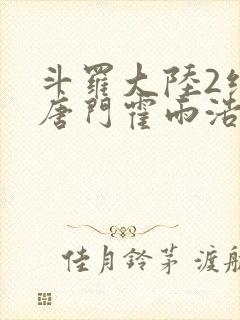 斗羅大陸2
唐門霍雨浩
佳月鈴茅 渡